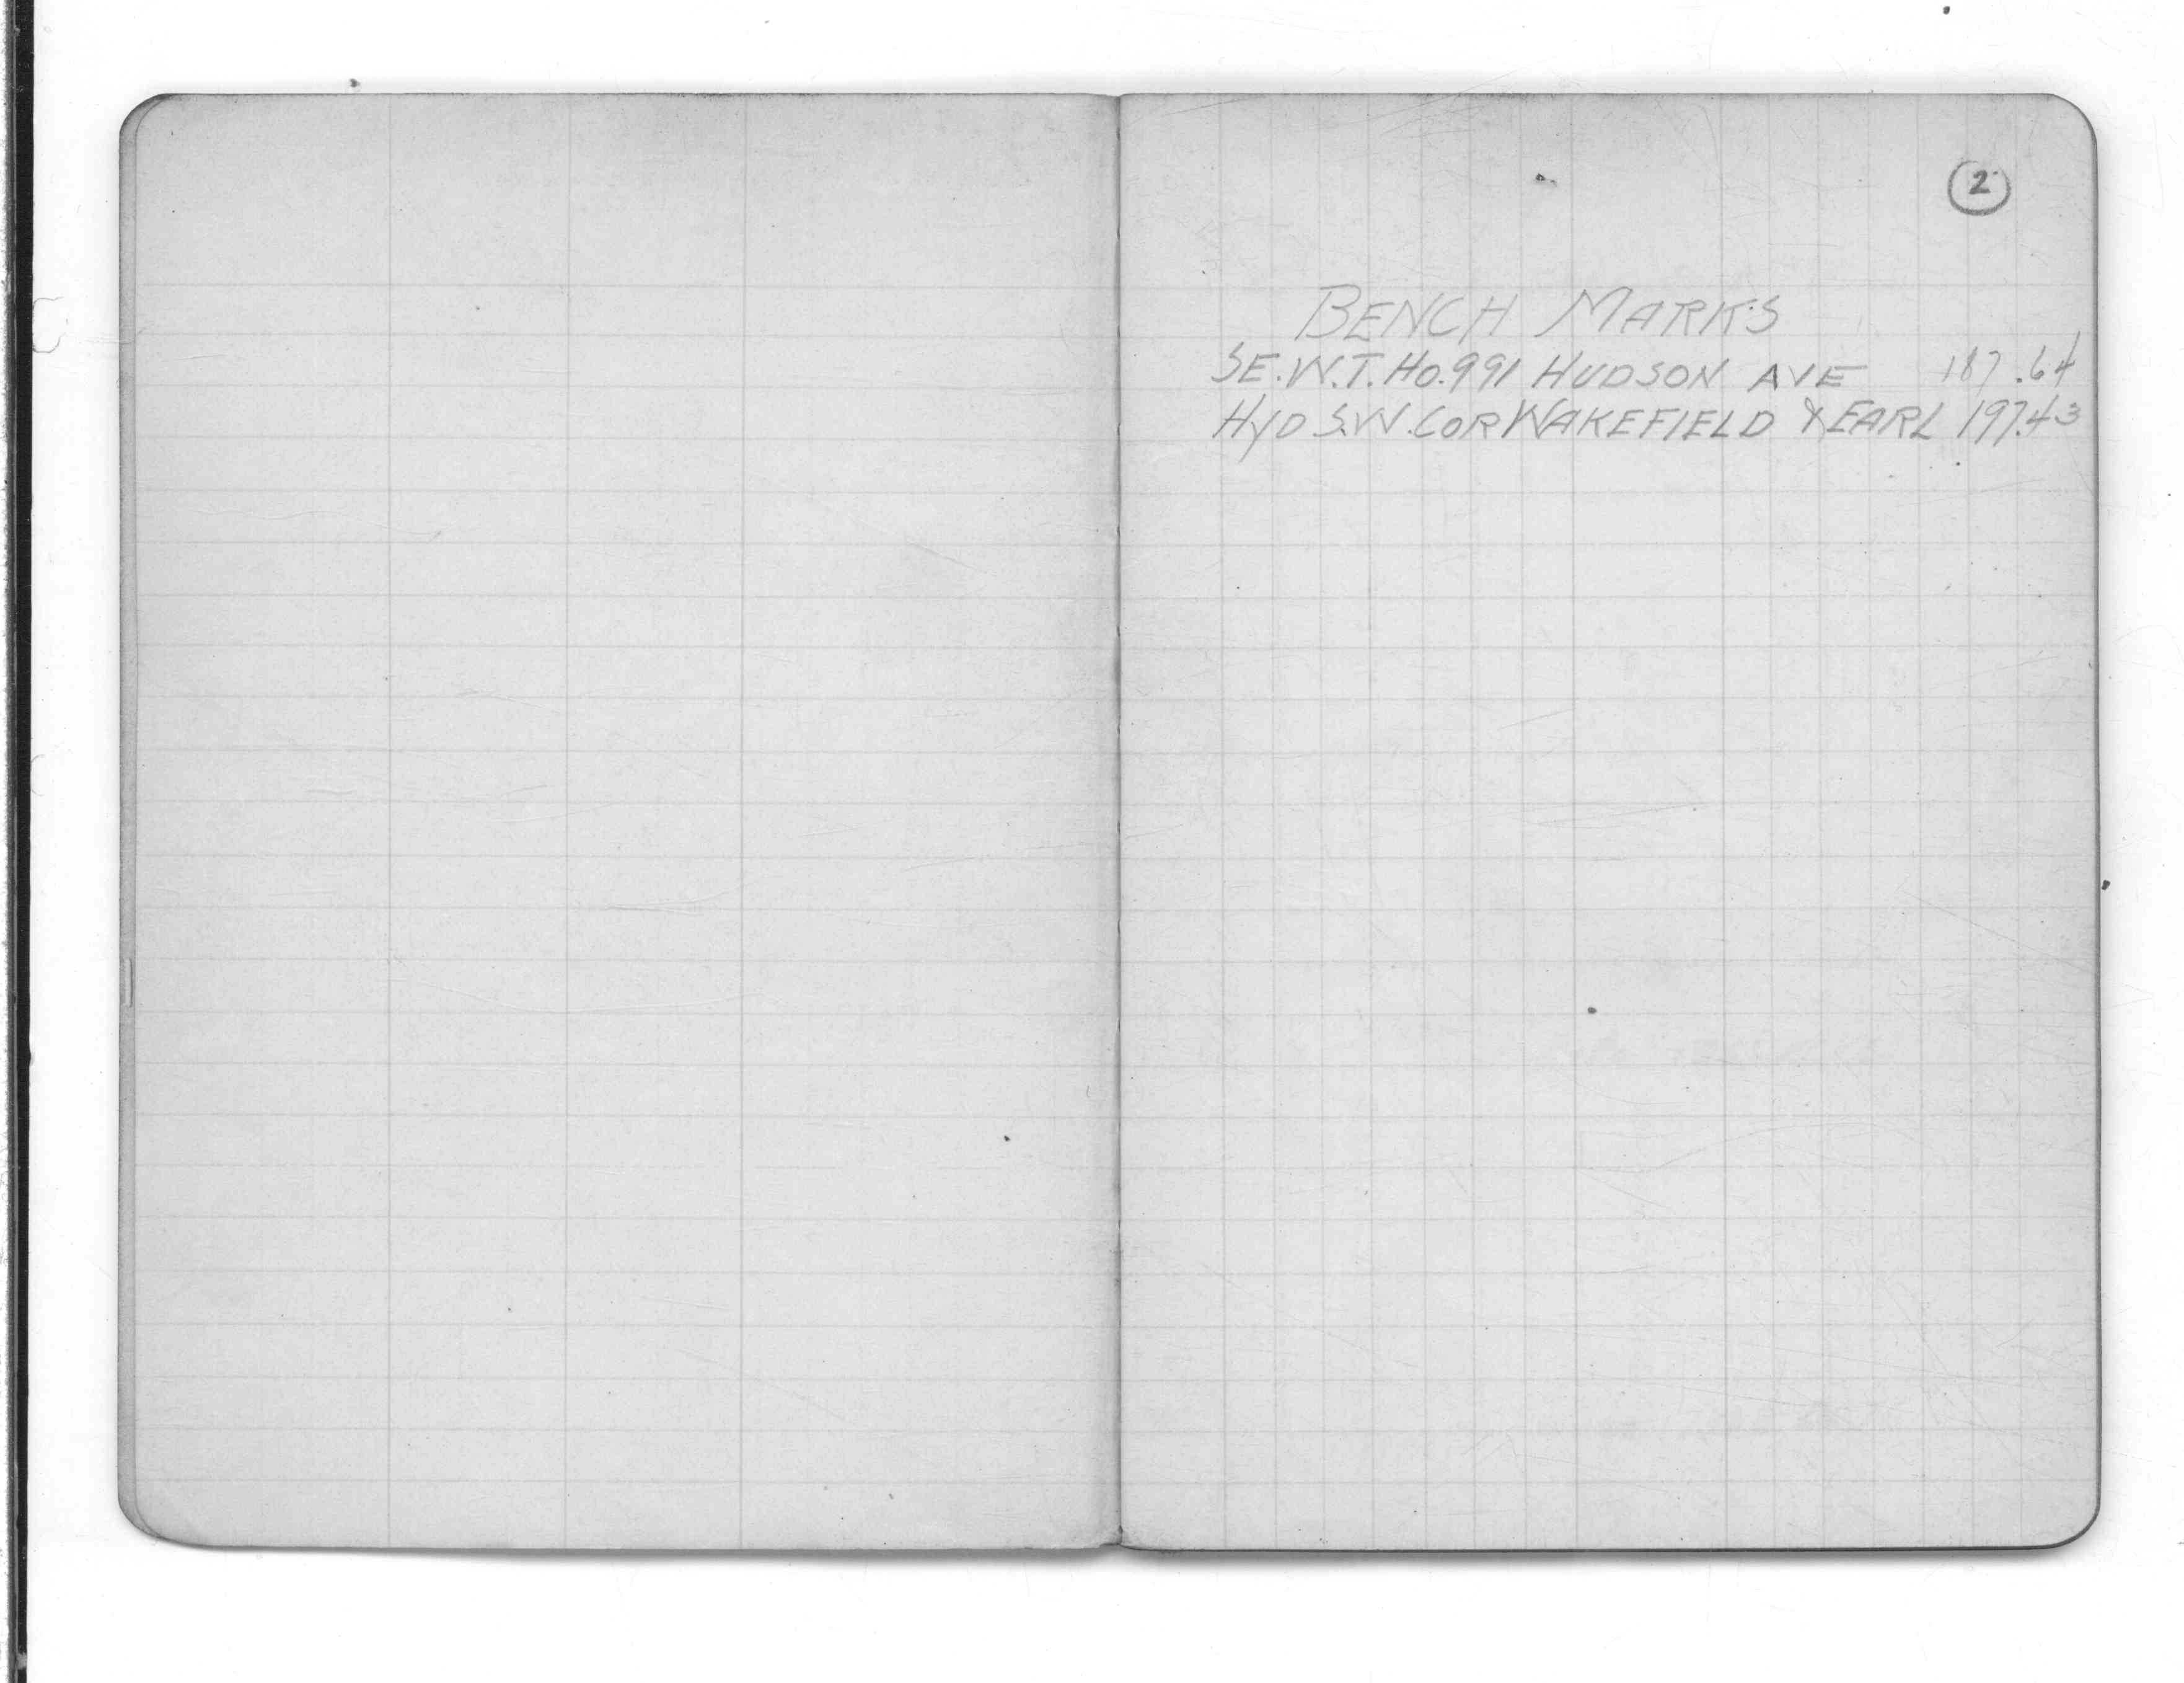 2
BENCH MARKS
SE.W.T. HO. 991 HUDSON AVE 187.64
HYD S.W. COR WAKEFIELD & EARL 197.43